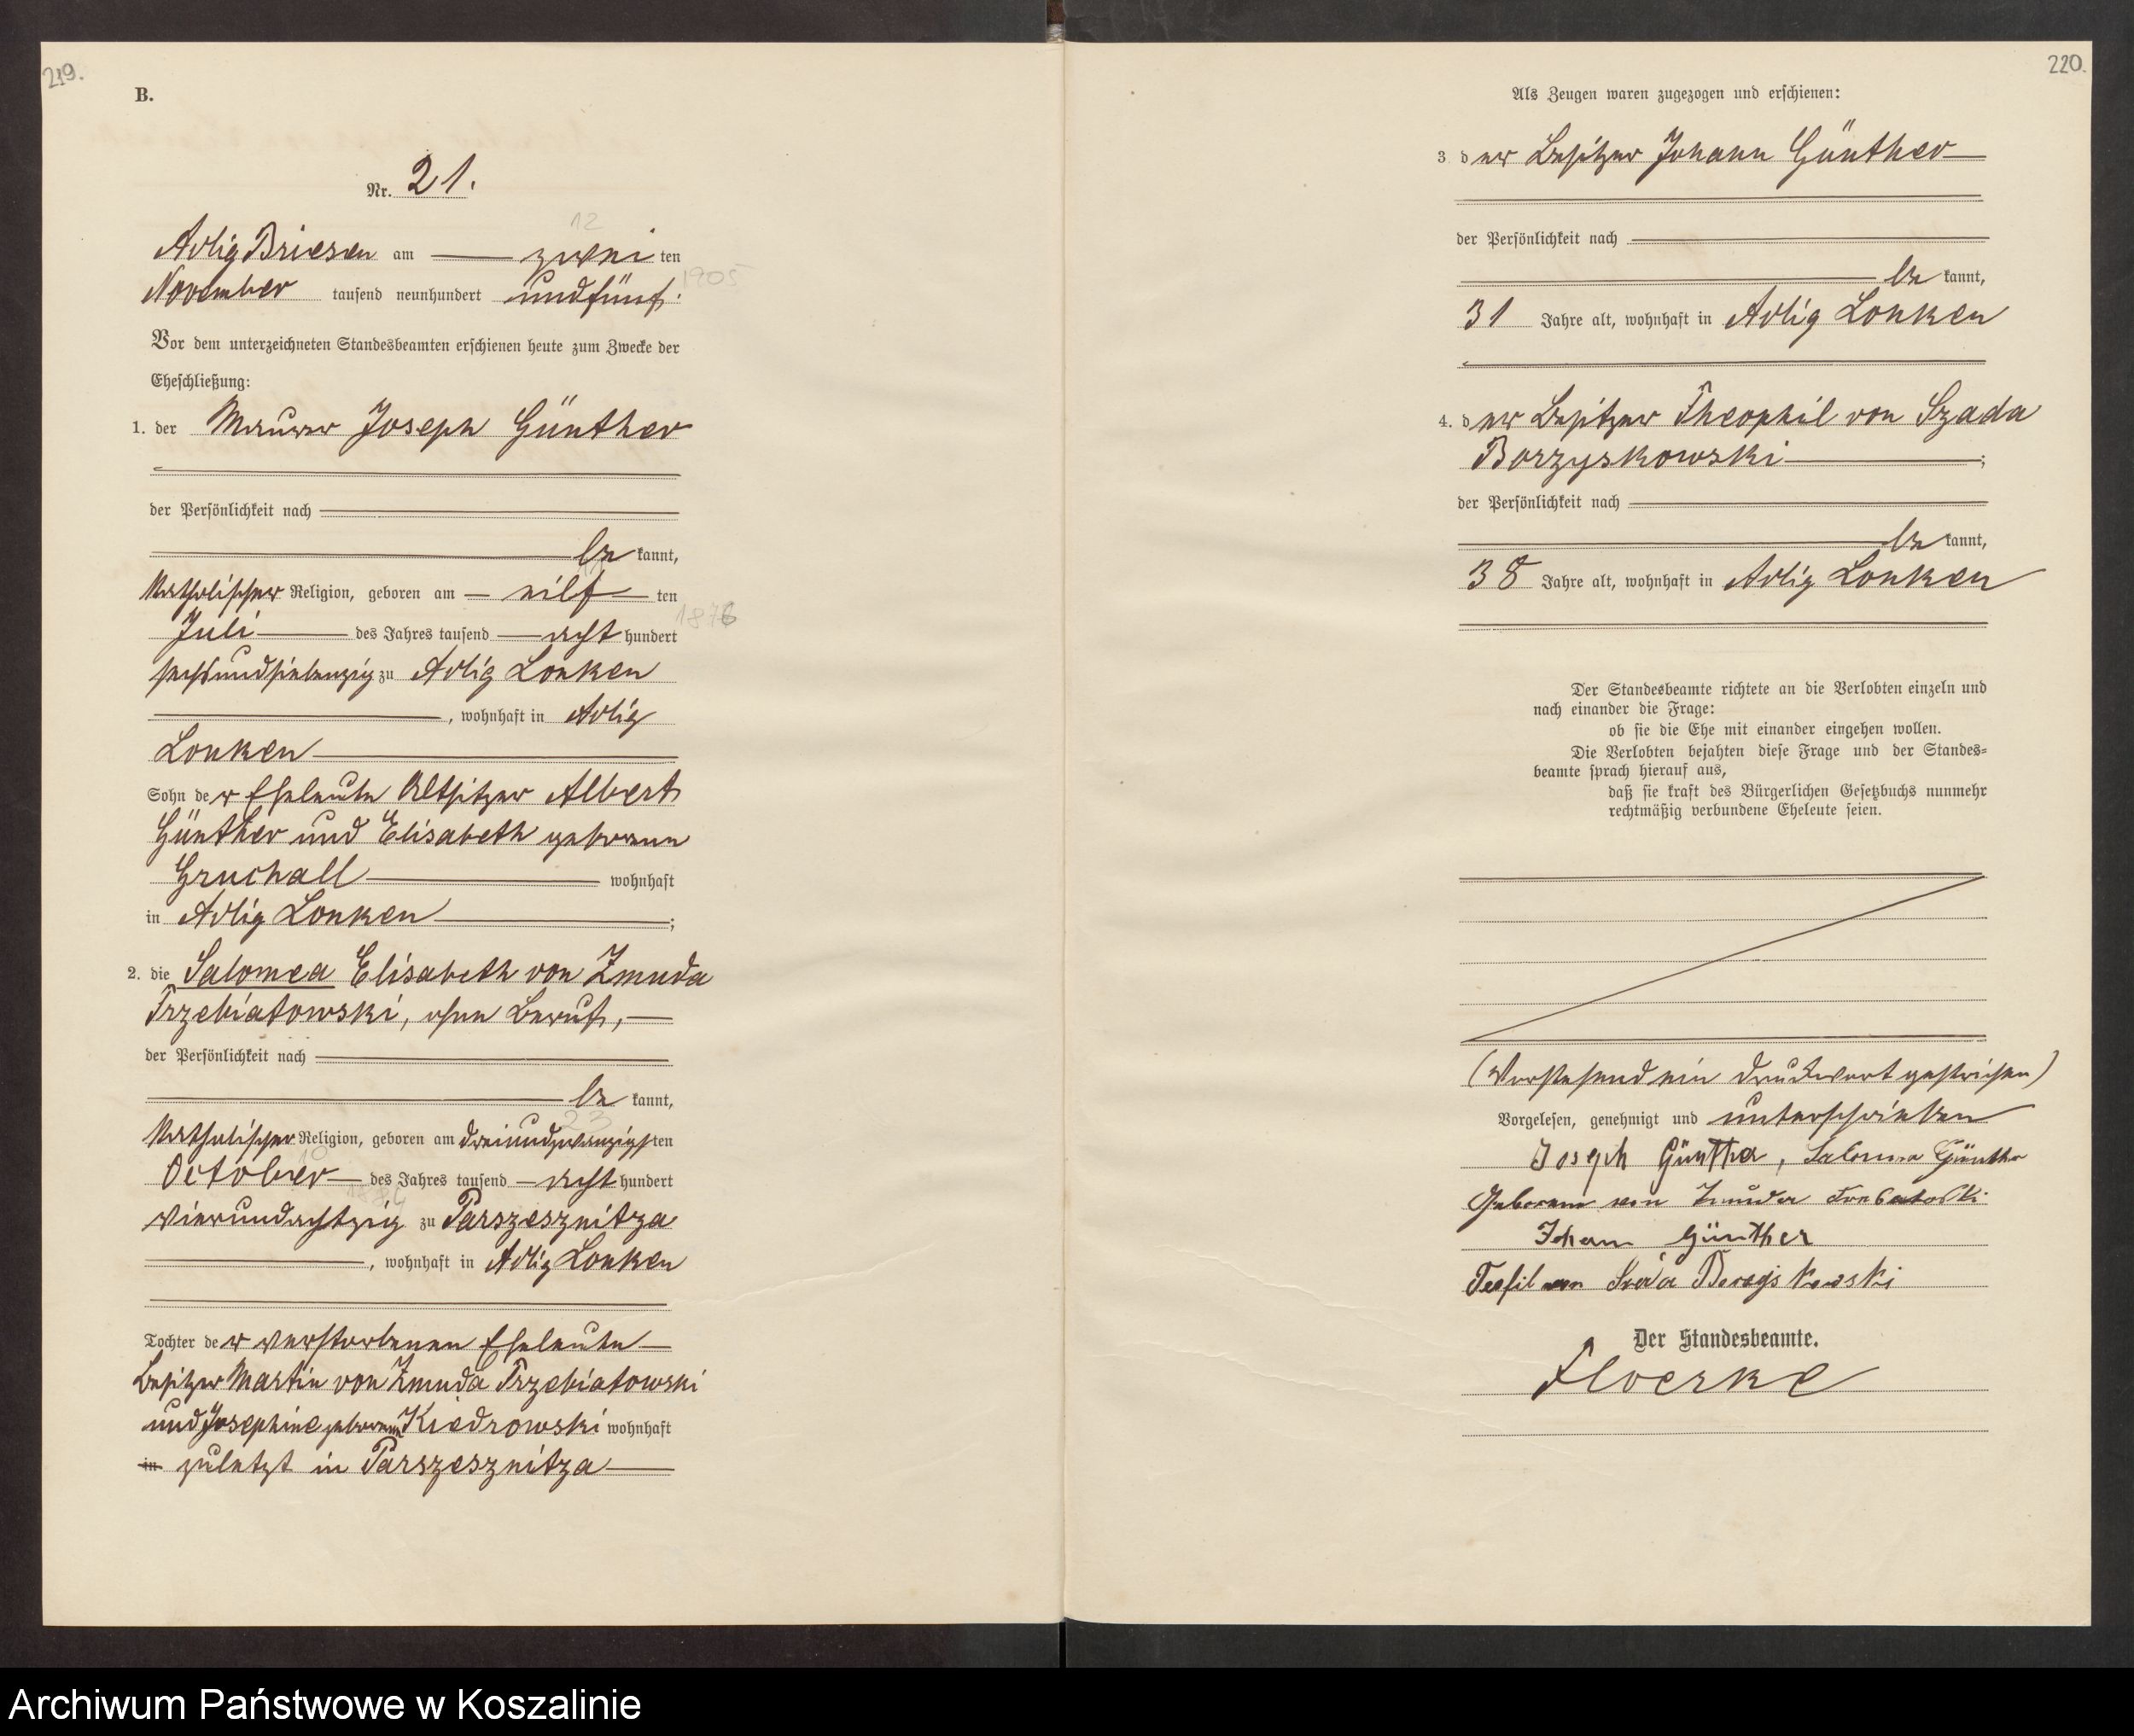 219.
B.
Nr. 21.
12
Adlig Briesen am zwei ten
1905
November tausend neunhundert undfünf.
Vor dem unterzeichneten Standesbeamten erschienen heute zum Zwecke der
Eheschließung:
1. der Maurer Joseph Günther
der Persönlichkeit nach
be kannt,
katholischer Religion, geboren am eilf ten
1876
Juli des Jahres tausend acht hundert
sechsundsiebenzig zu Adlig Lonken
, wohnhaft in Adlig
Lonken
Sohn der Eheleute Altsitzer Albert
Günther und Elisabeth geborene
Gruchall wohnhaft
in Adlig Lonken ;
2. die Salomea Elisabeth von Zmuda
Trzebiatowski, ohne Beruf,
der Persönlichkeit nach
be kannt,
23
katholischer Religion, geboren am dreiundzwanzigsten
10
October des Jahres tausend acht hundert
1884
vierundachtzig zu Parszesznitza
, wohnhaft in Adlig Lonken
Tochter der verstorbenen Eheleute
Besitzer Martin von Zmuda Trzebiatowski
und Josephine geborene Kiedrowski wohnhaft
in zuletzt in Parszesznitza
220.
Als Zeugen waren zugezogen und erschienen:
3 der Besitzer Johann Günther
der Persönlichkeit nach
be kannt,
31 Jahre alt, wohnhaft in Adlig Lonken
4. der Besitzer Theophil von Szada
Borzyskowski ;
der Persönlichkeit nach
be kannt,
38 Jahre alt, wohnhaft in Adlig Lonken
Der Standesbeamte richtete an die Verlobten einzeln und
nach einander die Frage:
ob sie die Ehe mit einander eingehen wollen.
Die Verlobten bejahten diese Frage und der Standes-
beamte sprach hierauf aus,
daß sie kraft des Bürgerlichen Gesetzbuchs nunmehr
rechtmäßig verbundene Eheleute seien.
(Vorstehend ein Druckwort gestrichen)
Vorgelesen, genehmigt und unterschrieben
Joseph Günther, Salomea Günther
Geborene von Zmuda
Johann Günther
Teofil von
Der Standesbeamte.
Floerke
Archiwum Państwowe w Koszalinie